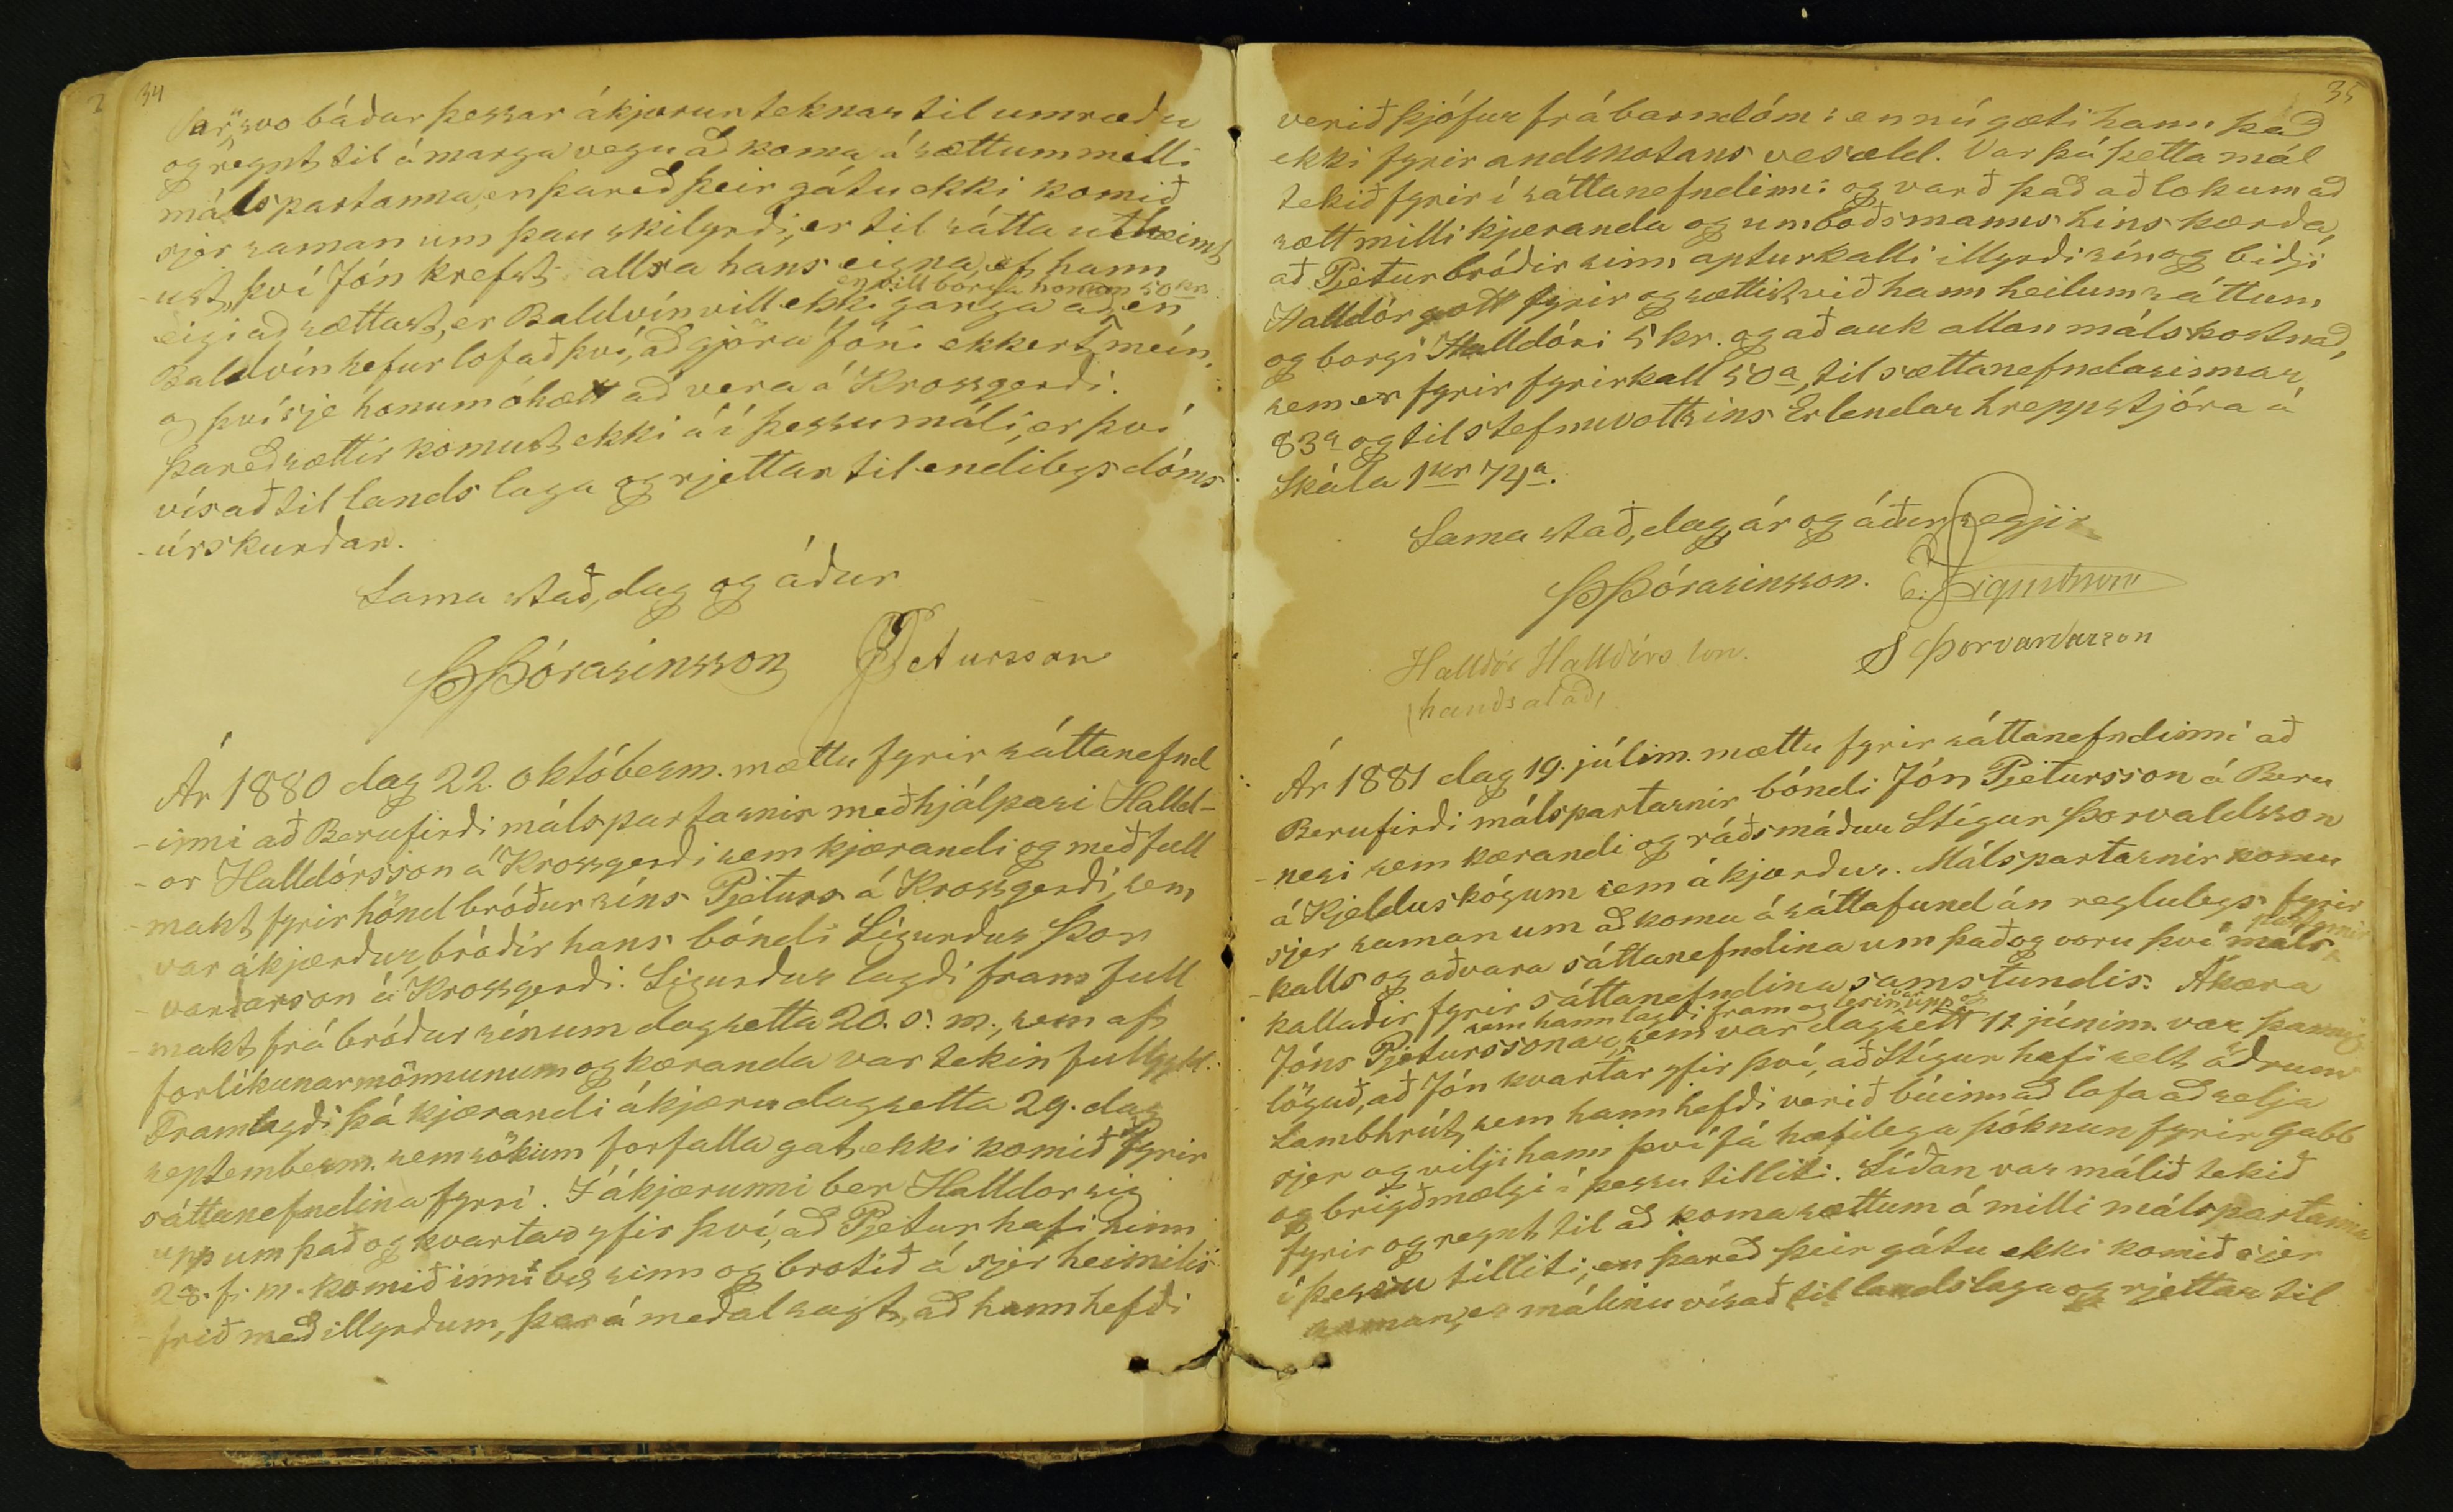 34
svo báðar þessar ákjærur teknar til umræðu
og reynt til á marga vegu að koma á sættum milli
málspartanna, en þareð þeir gátu ekki komið
sjer saman um þau skilyrði, er til sátta útheimt
-ust, því Jón krefst allra hans eigna, ef hann
en vill borga honum 50 kr.
eigi að sættast, er Baldvin vill ekki ganga að, en
Baldvin hefur lofað því, að gjöra Jóni ekkert mein,
og því sje honum óhætt að vera á Krossgerði.
Þareð sættir komust ekki á í þessu máli, er því
vísað til lands laga og rjettar til endilegs dóms
-úrskurðar.
Sama stað, dag og áður
ÞÞórarinsson Petursson
Ár 1880 dag 22. októberm. mættu fyrir sáttanefnd
-inni að Berufirði málspartarnir meðhjálpari Halld-
-or Halldórsson á Krossgerði sem kjærandi og með full
-makt fyrir hönd bróður síns Pjeturs á Krossgerði, sem
var ákjærður bróðir hans bóndi Sigurður Þor
-varðarson á Krossgerði. Sigurður lagði fram full
-makt frá bróður sínum dagsetta 20. s. m., sem af
forlíkunarmönnunum og kæranda var tekin fullgyld.
Framlagði þá kjærandi ákjæru dagsetta 29. dag
septemberm. sem sökum forfalla gat ekki komið fyrir
sáttanefndina fyrri. Í ákjærunni ber Halldor sig
upp um það og kvartar yfir því, að Pjetur hafi hinn
28. f. m. komið inní bæ sinn og brotið á sjer heimilis
-frið með illyrðum, þar á meðal sagt, að hann hefði
35
verið þjófur frá barndómi en nú gæti hann það
ekki fyrir andskotans vesæld. Var þá þetta mál
tekið fyrir í sáttanefndinni og varð það að lokum að
sætt milli kjæranda og umboðsmanns hins kærða,
að Pjetur bróðir sinn apturkalli illyrði sín og biðji
Halldór gott fyrir og sættist við hann heilum sáttum
og borgi Halldóri 5 kr. og að auk allan málskostnað,
sem er fyrir fyrirkall 50 a, til sættanefndarinnar
83 a og til stefnuvottsins Erlendar hreppstjóra á
Skála 1 kr 74 a.
Sama stað, dag, ár og áður segjir
ÞÞórarinsson.
Halldór Halldórs son.
S Þorvarðarson
handsalað
Ár 1881 dag 19. júlím. mættu fyrir sáttanefndinni að
Berufirði málspartarnir bóndi Jón Pjetursson á Beru
-nesi sem kærandi og ráðsmaður Stígur Þorvaldsson
á Kjelduskógum sem ákjærður. Málspartarnir komu
sjer saman um að koma á sáttafund án reglulegs fyrir
-kalls og aðvara sáttanefndina um það og voru því máls-
partarnir
kallaðir fyrir sáttanefndina samstundis. Ákæra
sem hann lagði fram og lesin var upp og
Jóns Pjeturssonar, sem var dagsett 11. júním. var þannig
löguð, að Jón kvartar yfir því, að Stígur hafi selt öðrum
lambhrút, sem hann hefði verið búinn að lofa að selja
sjer og vilji hann því fá hæfilega þóknun fyrir gabb
og brigðmælgi í þessu tilliti. Síðan var málið tekið
fyrir og reynt til að koma sættum á milli málspartanna
í þessu tilliti, en þareð þeir gátu ekki komið sjer
saman, er málinu vísað til landslaga og rjettar til